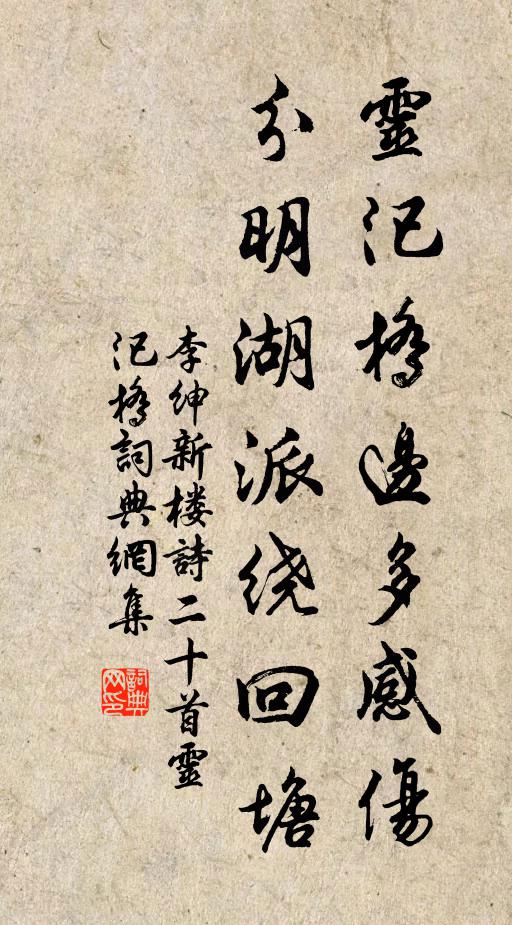 靈汜橋邊多感傷
分明湖派绕回塘
李紳新楼詩二十首靈
汜橋詞典網集
詞典网印